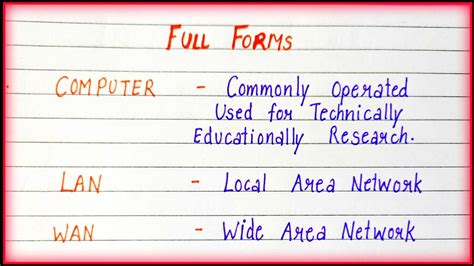 FULL FORMS
COMPUTER - Commonly Operated
Used for Technically
Educationally Research.
LAN - Local Area Network
WAN - Wide Area Network